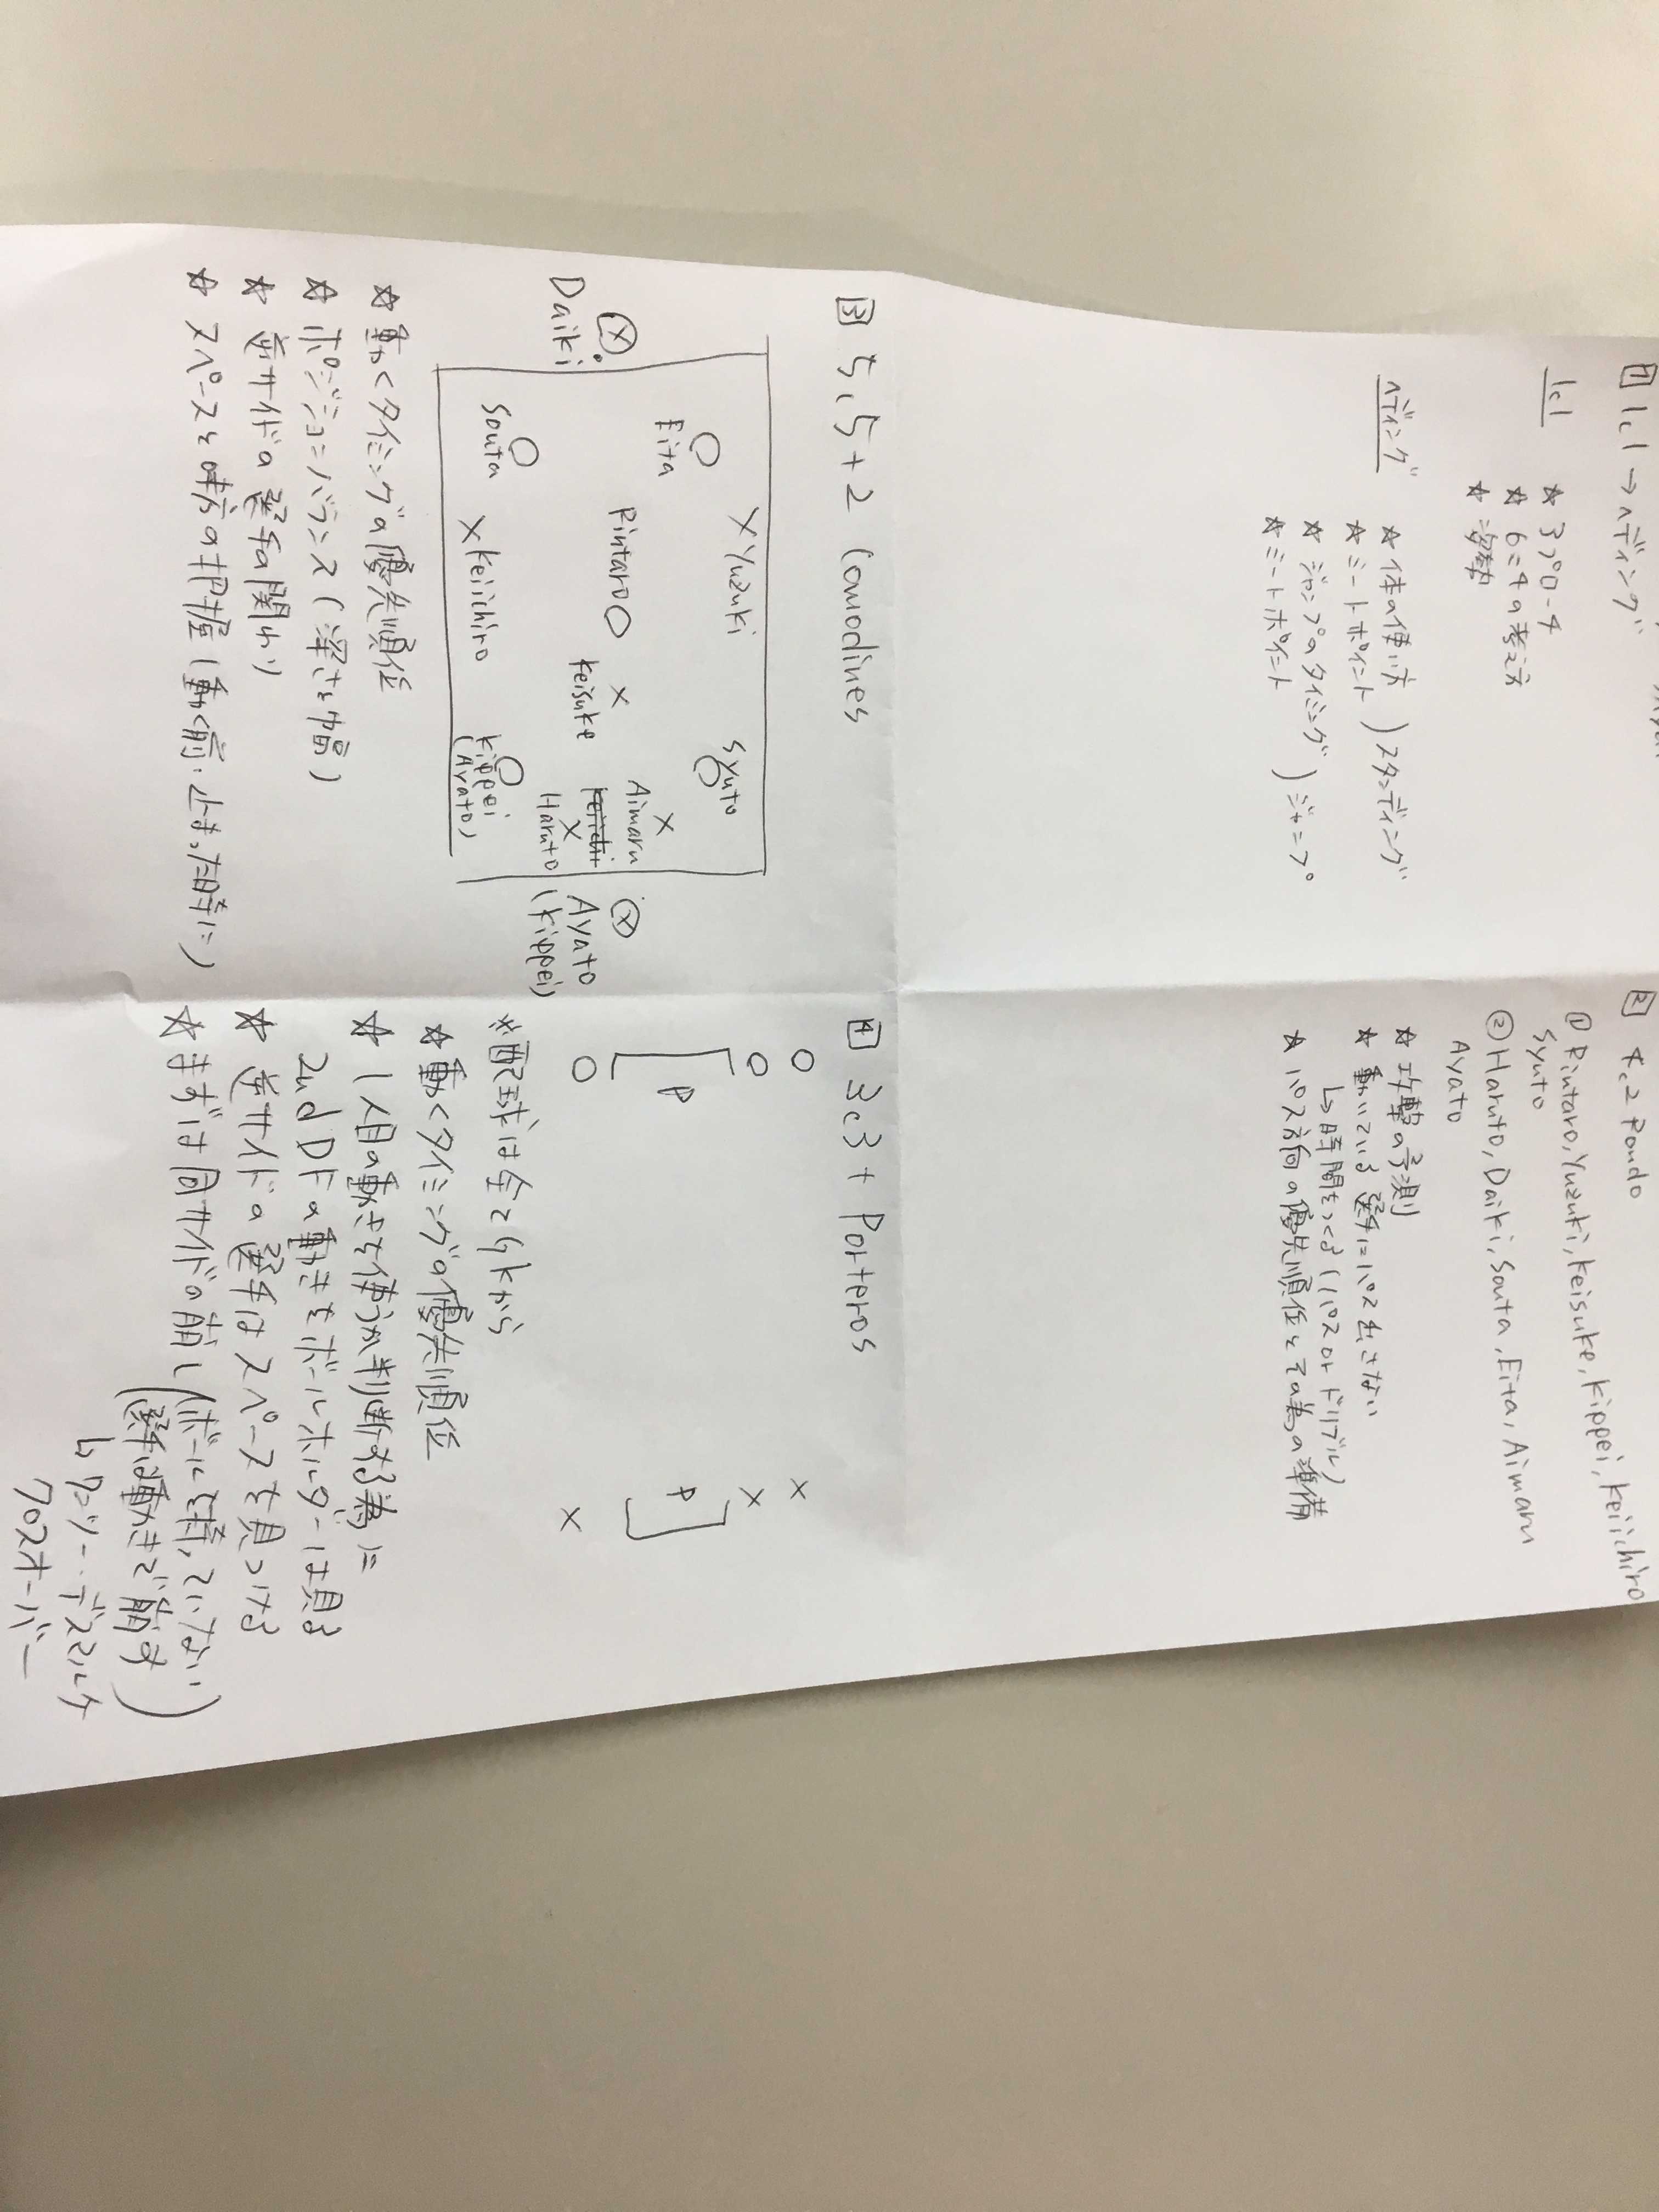 1 1c1→ヘディング
1c1
☆ アプローチ
☆ 姿勢
ヘディング
☆ 体の使い方
☆ ミートポイント ) スタンディング
☆ ジャンプのタイミング
☆ ミートポイント ) ジャンプ
2 4c2 Rondo
① Rintaro, Yuzuki, Keisuke, Kippei, Keiichiro
Syuto
② Haruto, Daiki, Souta, Eita, Aimaru
Ayato
☆ 攻撃の予測
☆ 動いている選手にパス出さない
↳時間をつくる (パス or ドリブル)
☆ パス方向の優先順位とその為の準備
3 5c5+2 Comodines
X Yuzuki
Syuto
Eita
Aimaru
Daiki
Rintaro
Keisuke
Haruto
Ayato
(Kippei)
Souta
X Keiichiro
Kippei
(Ayato)
☆ 動くタイミングの優先順位
☆ ポジションバランス (深さと幅)
☆ 逆サイドの選手の関わり
☆ スペースと味方の把握 (動く前・止まった時に)
4 3c3+Porteros
P
P
※配球は全てGKから
☆ 動くタイミングの優先順位
☆ 1人目の動きを使うか判断する為に
2nd DFの動きをボールホルダーは見る
☆ 逆サイドの選手はスペースを見つける
☆ まずは同サイドの崩し (ボールを持っていない
選手は動きで崩す)
↳ワンツー・デスマルケ
クロスオーバー